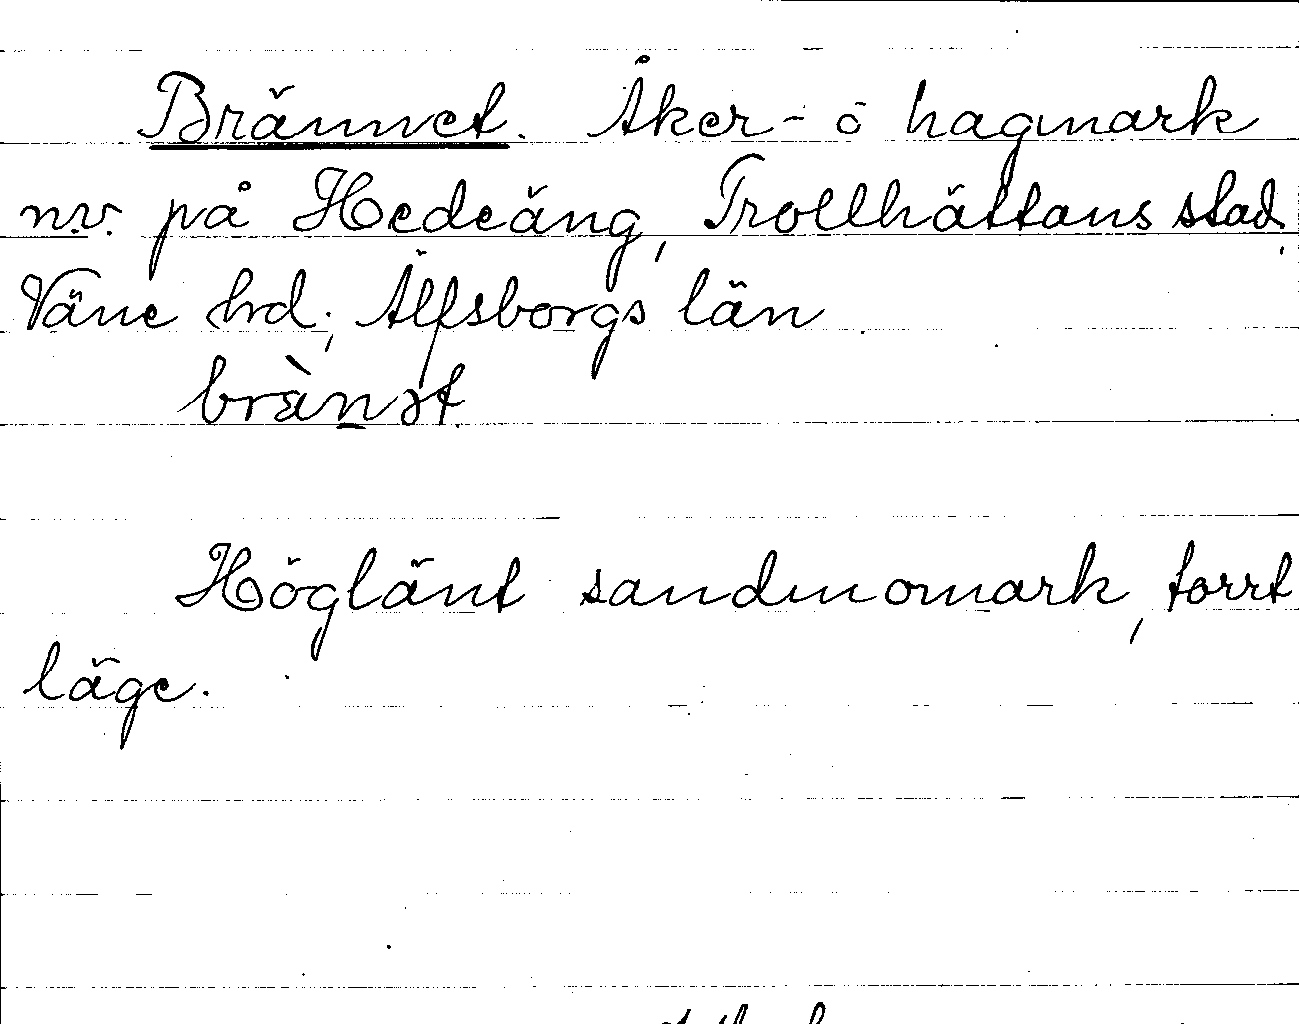 Brännet. Åker- o hagmark
n.v. på Hedeäng, Trollhättans stad,
Väne hd, Älfsborgs län
brànət
Höglänt sandmomark, torrt
läge.